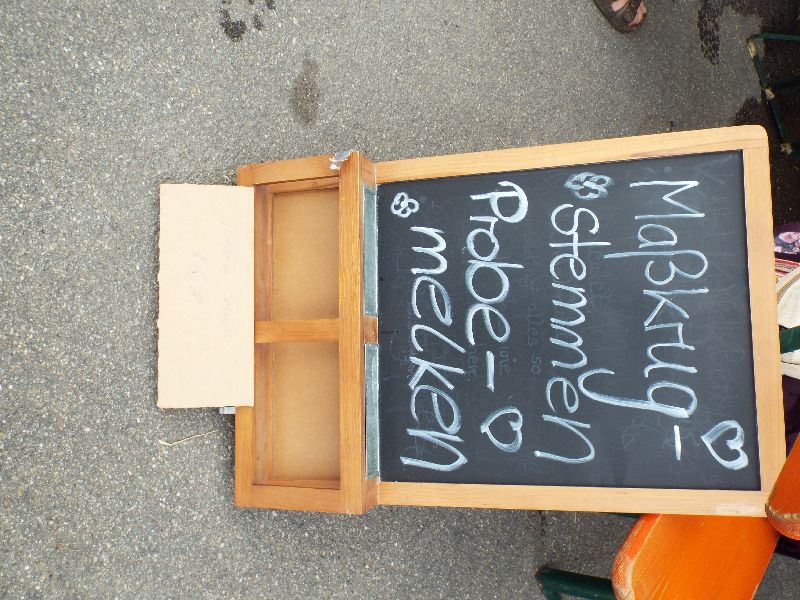 Maßkrug-
stemmen
Probe-
melken